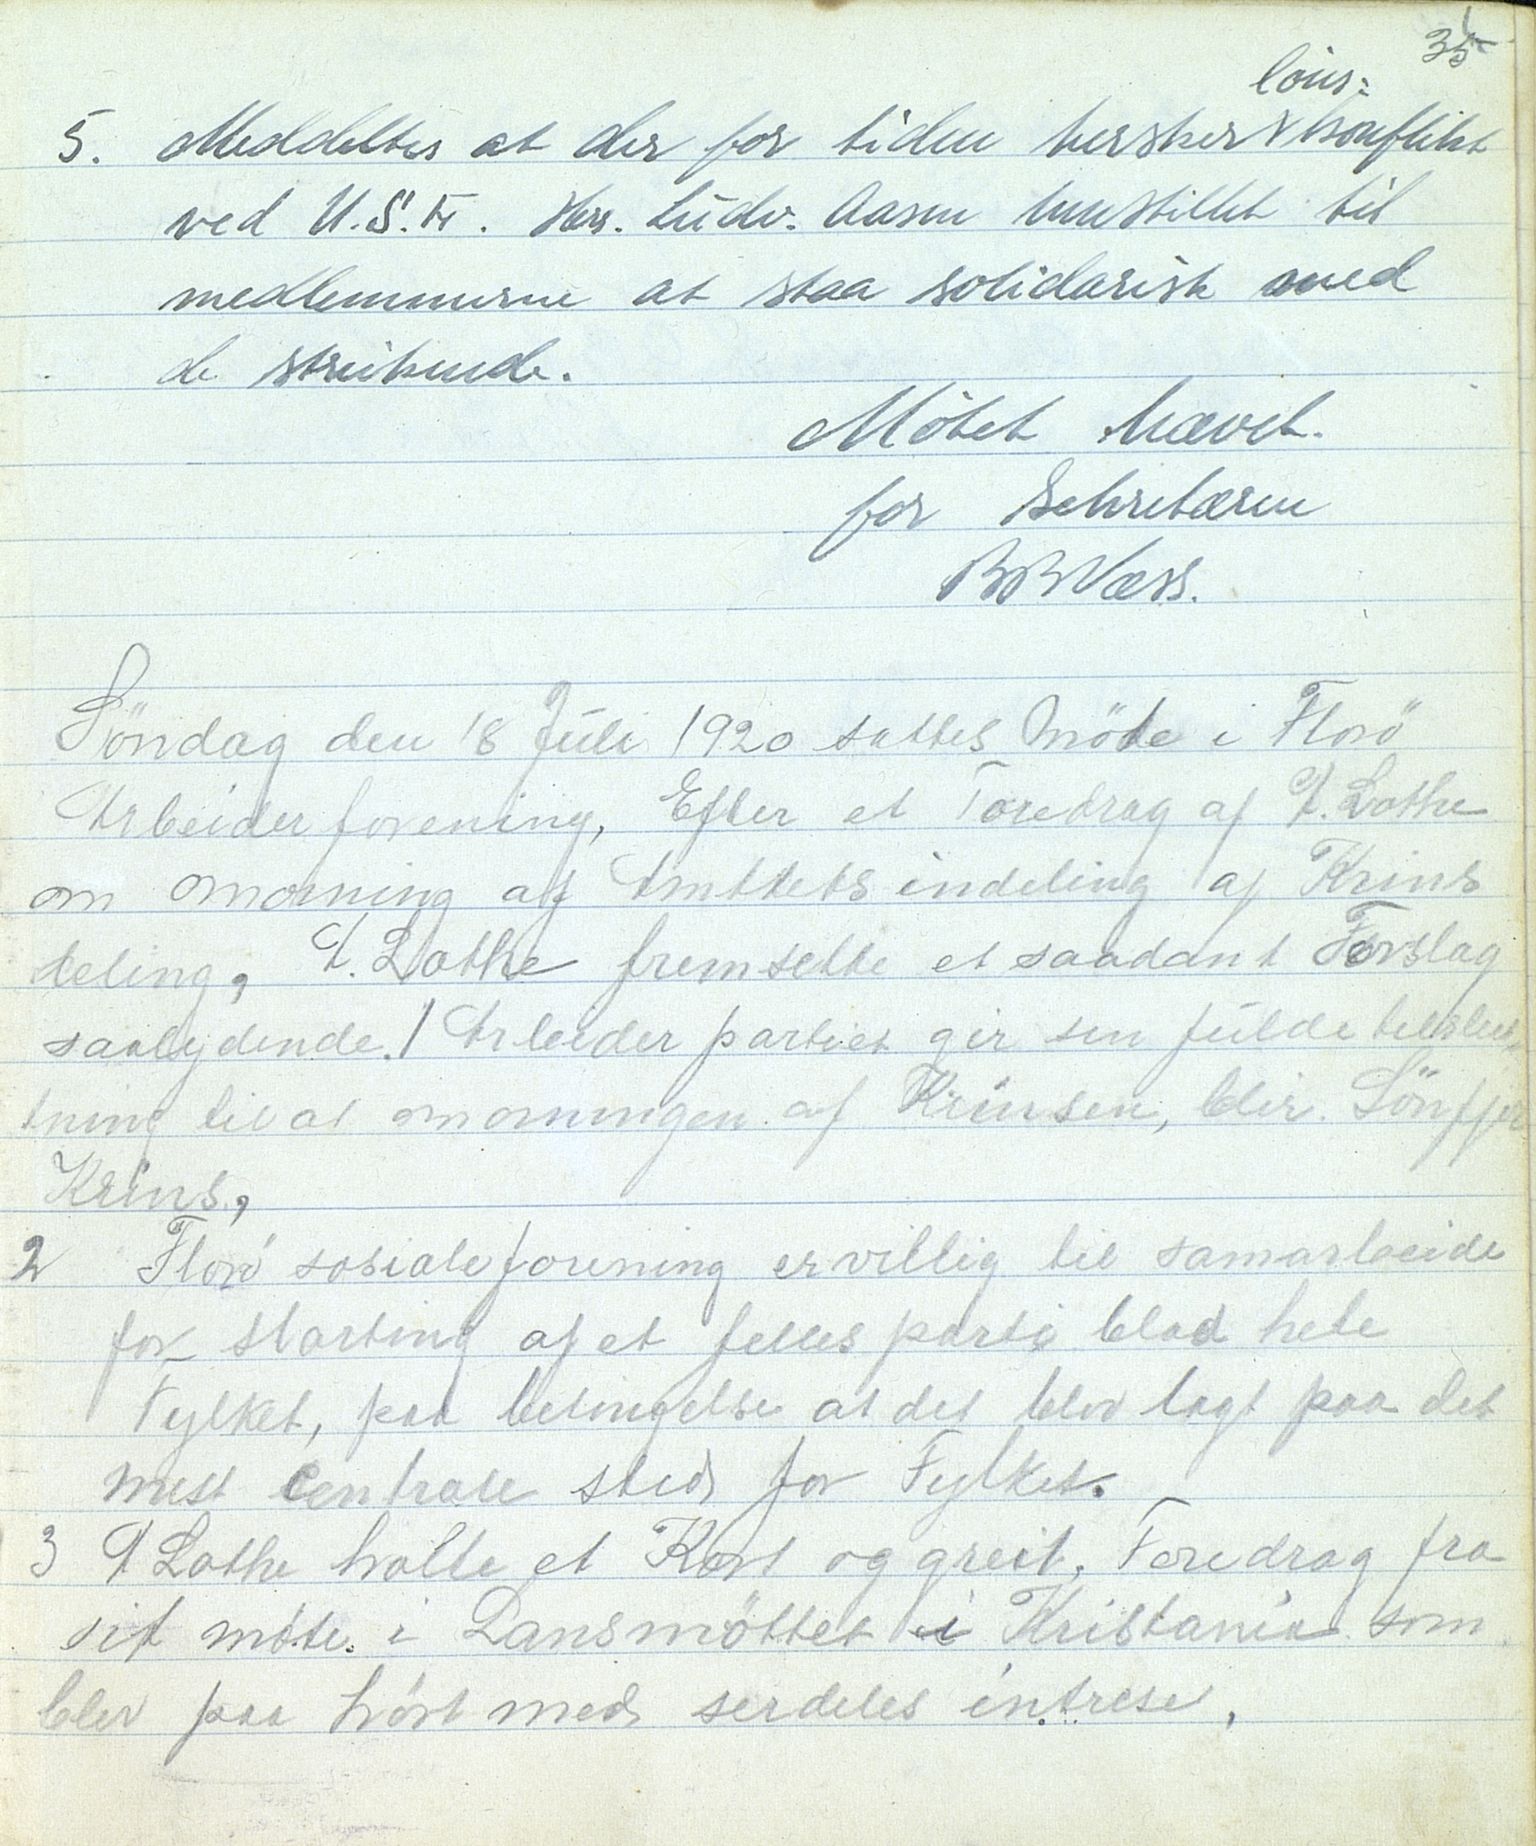 35
löns:
5. Meddeltes at der for tiden hersker konflikt
ved U.S.F. Hr. Ludv. Aasen henstillet til
medlemmerne at staa solidarisk med
de streikende.
Mötet hævet.
for Sekretæren
BB Næss.
Söndag den 18 Juli 1920 sattes Möte i Florö
Arbeider forening, Efter et Foredrag af A. Lothe
om omorning af Amttets indeling af Krins
deling, A. Lothe fremsette et saadant Forslag
saalydende. 1 Arbeider partiet gir sin fulde tilslut,
tning til at omorningen af Krinsen, blir Sönfjor
Krins,
2 Florö sosiale forening er villig til samarbeide
for starting af et felles parti blad hele
Fylket, paa betingelse at det blir lagt paa det
mest centrale sted for Fylket.
3 A Lothe holte et Kort og greit, Foredrag fra
sit möte i Lansmöttet i Kristania som
blev paa hört med serdeles intrese,